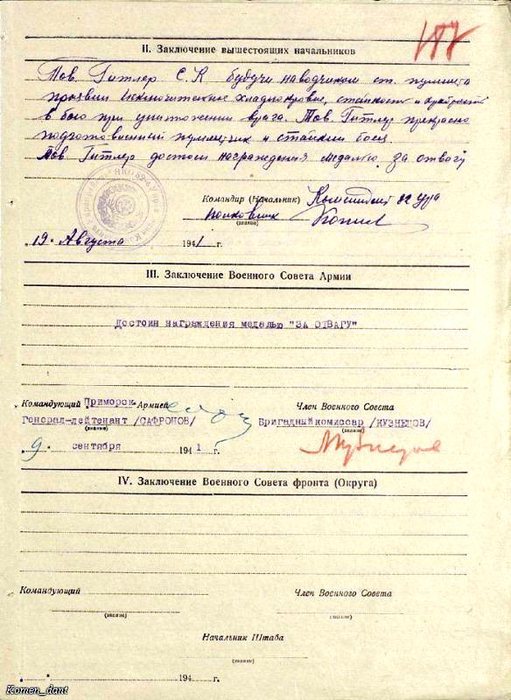 II. Заключение вышестоящих начальников
Тов. Гитлер С.К будучи наводчиком ст. пулемета
проявил исключительное хладнокровие, стойкость и
в бою при уничтожении врага. Тов. Гитлер прекрасно
подготовленный пулеметчик и стойкий боец.
Тов. Гитлер достоин награждения медалью за отвагу
Командир (Начальник) Комендант 82 Ура
полковник
(звание)
19 Августа 1941 г.
III. Заключение Военного Совета Армии
Достоин награждения медалью "ЗА ОТВАГУ"
Командующий Приморск. Армией
Генерал-лейтенант /САФРОНОВ/
(звание)
Член Военного Совета
Бригадный комиссар /КУЗНЕЦОВ/
(звание)
9 сентября 1941 г.
IV. Заключение Военного Совета фронта (Округа)
Командующий
(звание)
Член Военного Совета
(звание)
Начальник Штаба
(звание)
194 г.
Komen_dant